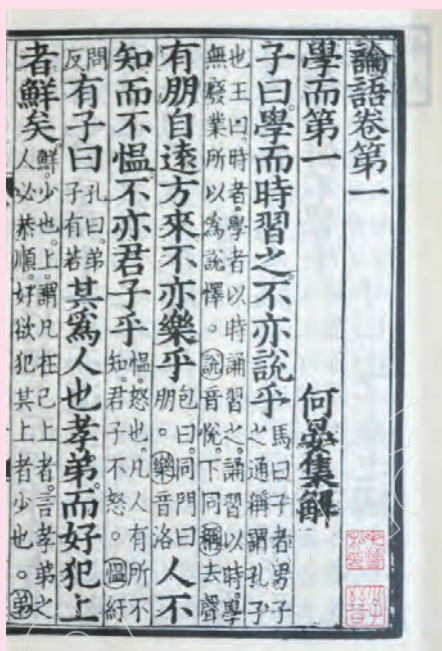 論語卷第一
學而第一 何晏集解
子曰。學而時習之。不亦說乎 馬曰子者男子之通稱謂孔子
也王曰。時者。學者以時誦習之。誦習以時。學無廢業所以爲說懌。說音悅。下同稱去聲
有朋自遠方來不亦樂乎 包曰。同門曰朋。樂音洛 人不
知而不慍。不亦君子乎 慍。怒也。凡人有所不知。君子不怒。慍紆
問反 有子曰 孔曰。弟子有若 其爲人也孝弟。而好犯上
者鮮矣 鮮。少也。上。謂凡在己上者。言孝弟之人必恭順。好欲犯其上者少也。弟